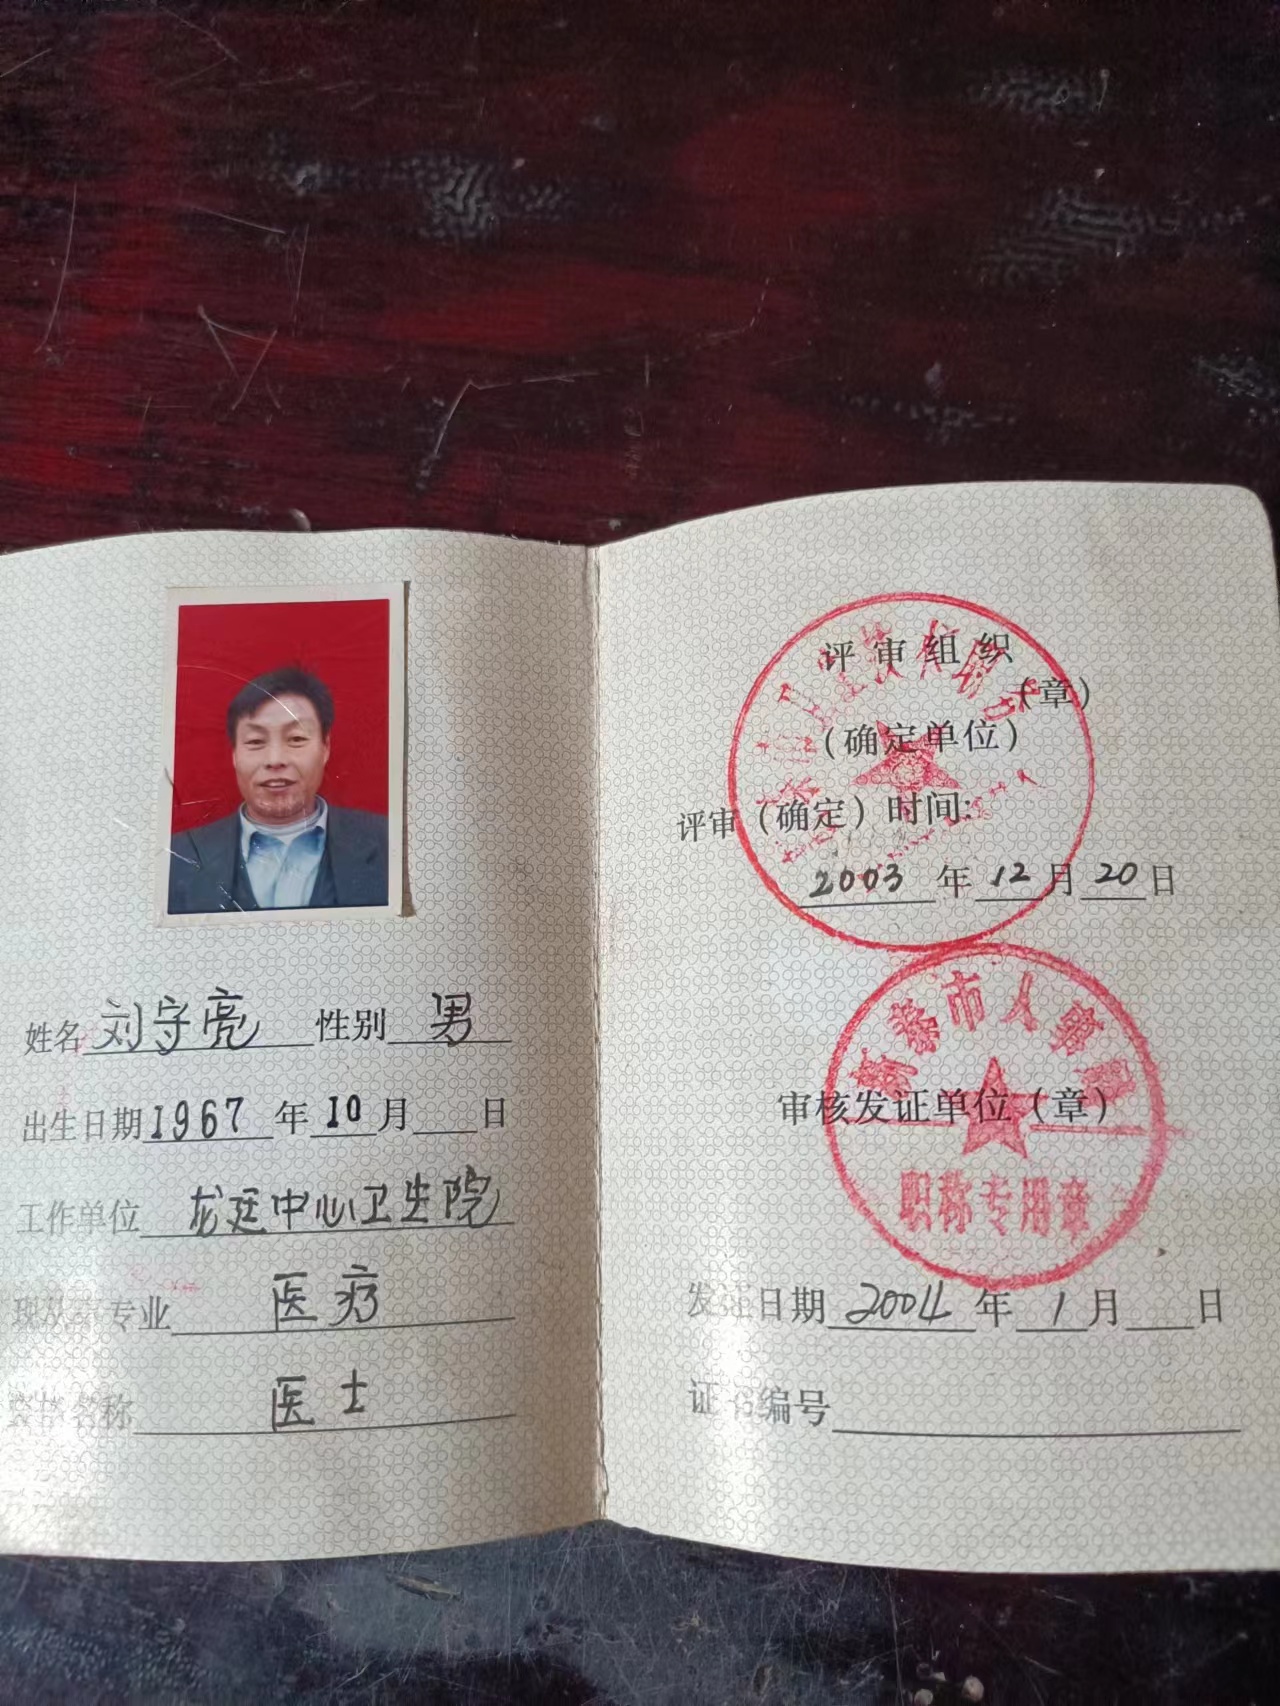 姓名 刘守亮 性别 男
出生日期 1967 年 10 月 日
工作单位 龙廷中心卫生院
现从事专业 医疗
资格名称 医士
评审组织
（章）
（确定单位）
评审（确定）时间：
2003 年 12 月 20 日
新泰市人事局
审核发证单位（章）
职称专用章
发证日期 2004 年 1 月 日
证书编号